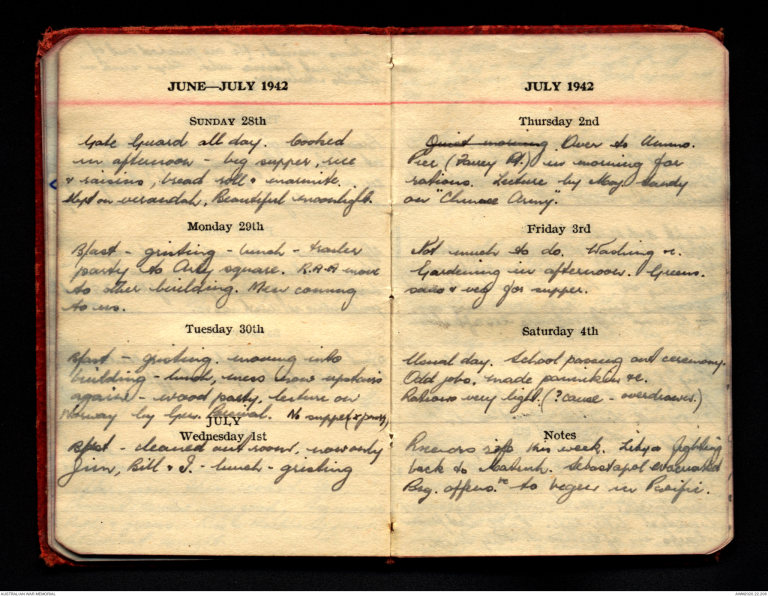 JUNE—JULY 1942
SUNDAY 28th
Gate Guard all day. Cooked
in afternoon - big supper, rice
& raisins, bread roll & marmite.
Slept on verandah, Beautiful moonlight.
Monday 29th
B/fast - gristing - lunch - trailer
party to Arty square. R.A.A move
to other building. Men coming
to us.
Tuesday 30th
B/fast - gristing. moving into
building - lunch, mess now upstairs
again - wood party, lecture on
Norway by Gen. Percival. No supper
JULY
Wednesday 1st
B/fast - cleaned out room, now only
Jim, Bill & I. - lunch - gristing
JULY 1942
Thursday 2nd
Quiet morning. Over to
Pier in morning for
rations. Lecture by Maj.
on "Chinese Army".
Friday 3rd
Not much to do. Washing &c.
Gardening in afternoon. Greens.
& veg for supper.
Saturday 4th
Usual day. School passing out ceremony.
Odd jobs, made pannikin &c.
Rations very light. (? cause - overdrawn.)
Notes
Rumours this week. Libya fighting
back to Matruh. Sebastapol evacuated
Big offens.ve to begin in Pacific.
AUSTRALIAN WAR MEMORIAL